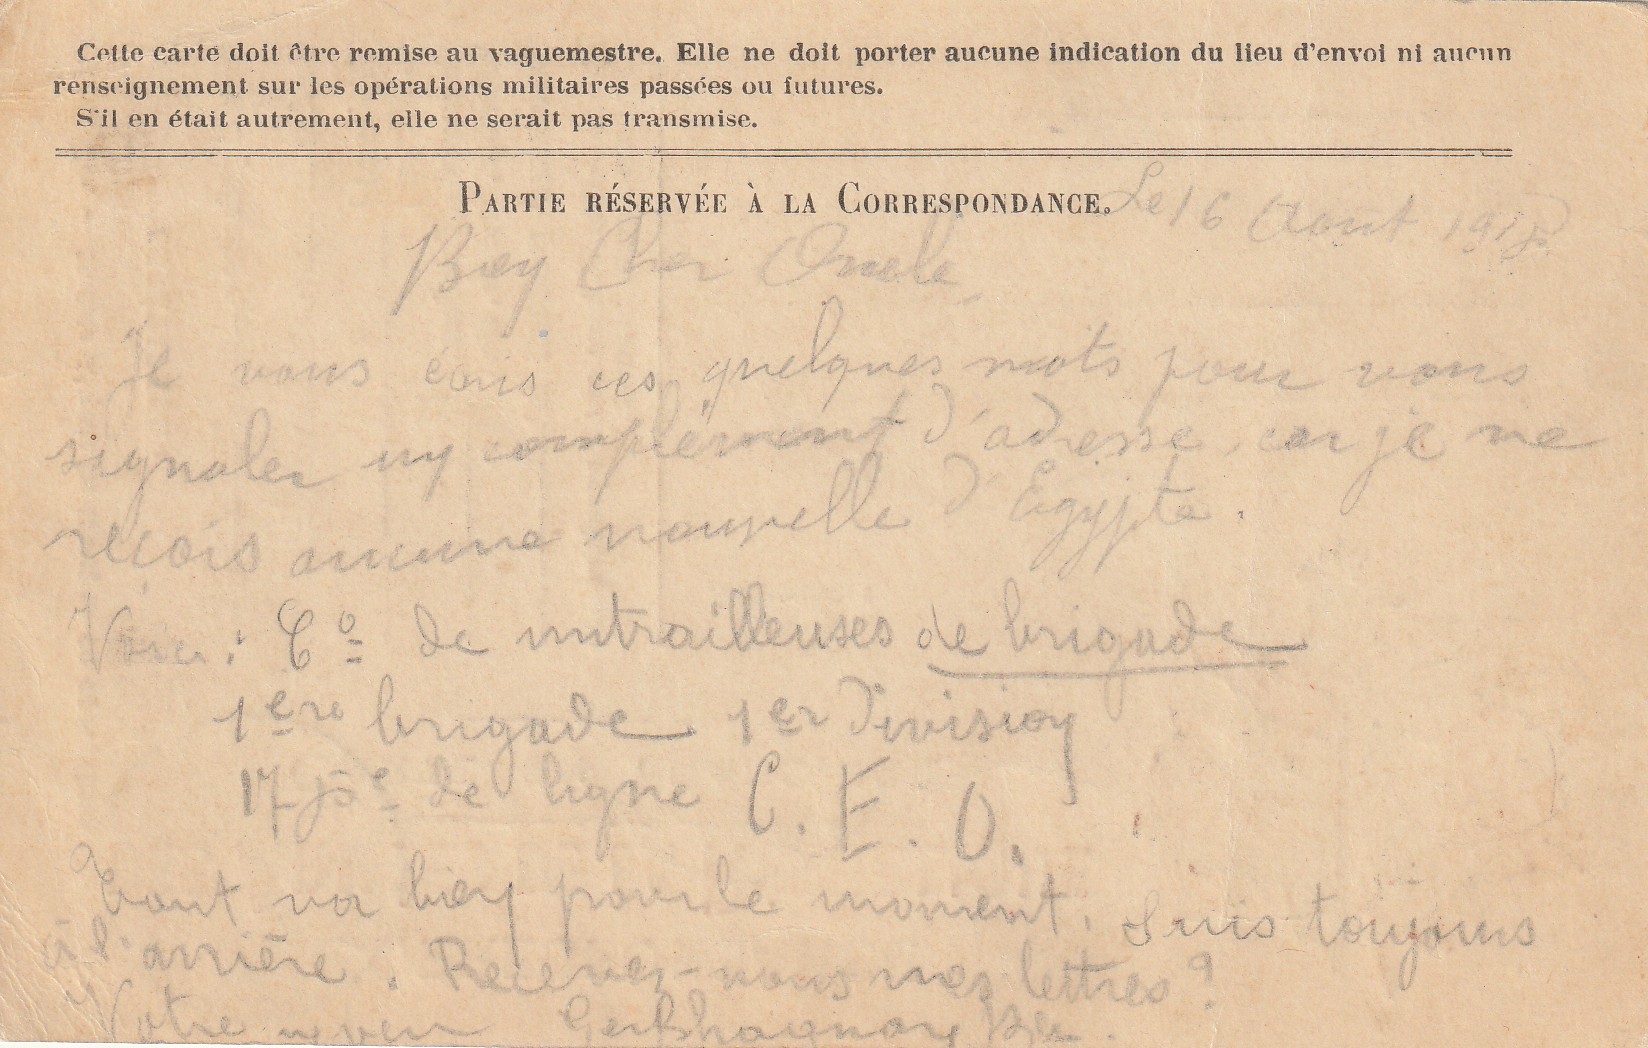 Cette carte doit être remise au vaguemestre. Elle ne doit porter aucune indication du lieu d'envoi ni aucun
renseignement sur les opérations militaires passées ou futures.
S'il en était autrement, elle ne serait pas transmise.
PARTIE RÉSERVÉE À LA CORRESPONDANCE.
Le 16 Aout
Bien Cher Oncle,
Je vous écris ces quelques mots pour vous
signaler un complément d'adresse, car je ne
reçois aucune nouvelle d'Egypte.
Voici : Cie de mitrailleuses de brigade
1ere brigade 1er Division
17 de ligne C. E. O.
Tout va bien pour le moment. Suis toujours
à l'arrière. Recevez-vous mes lettres ?
Votre neveu